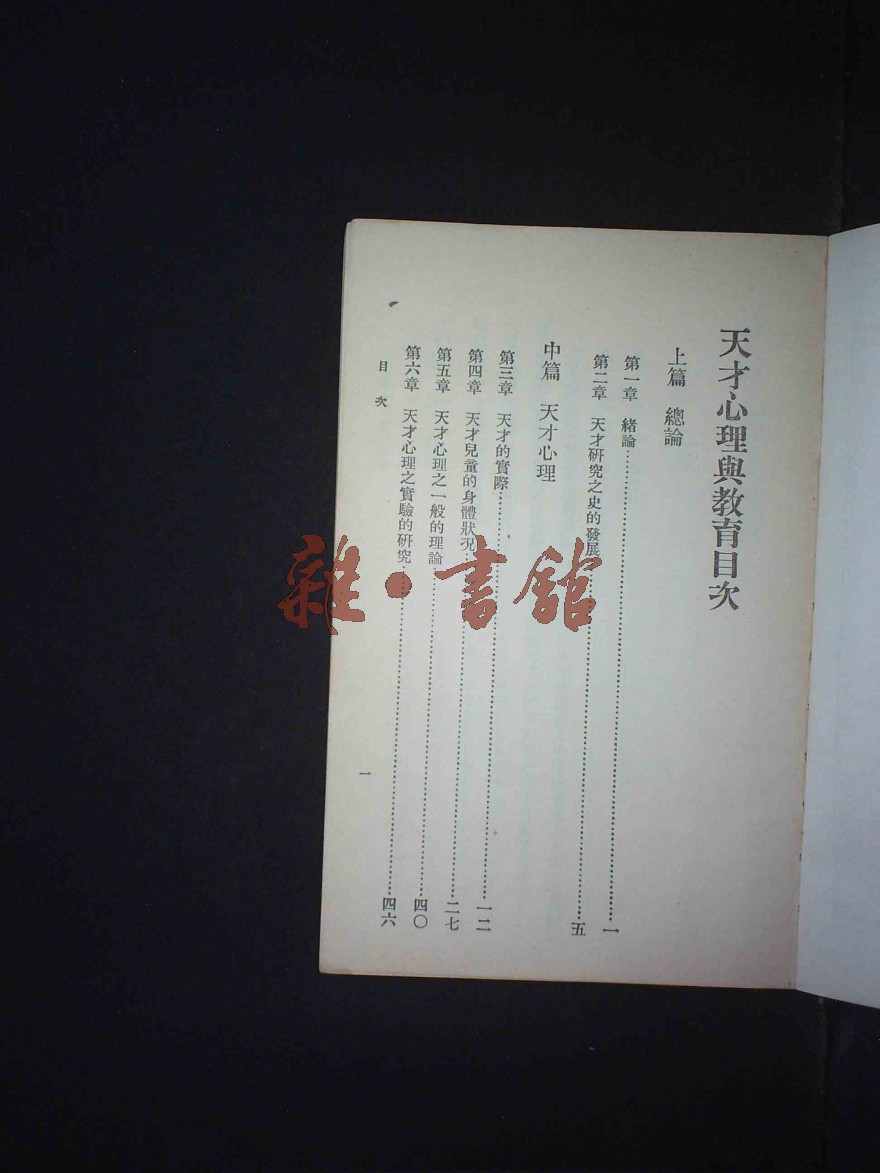 天才心理與教育目次
上篇 總論
第一章 緒論……一
第二章 天才研究之史的發展……五
中篇 天才心理
第三章 天才的實際……一二
第四章 天才兒童的身體狀况……二七
第五章 天才心理之一般的理論……四〇
第六章 天才心理之實驗的研究……四六
目次
一
雜·書館